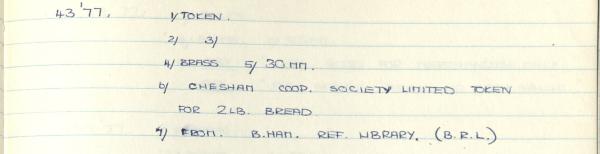 43 '77. 1/ TOKEN.
2/ 3/
4/ BRASS 5/ 30 MM.
6/ CHESHAM COOP. SOCIETY LIMITED TOKEN
FOR 2LB. BREAD
7/ FROM. B.HAM. REF. LIBRARY. (B.R.L.)